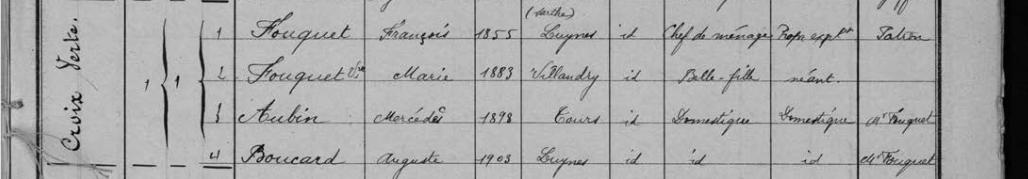 (Sarthe)
Croix Verte.
1 1 1 Fouquet François 1855 Luynes id Chef de ménage Prop. explt Patron
2 Fouquet Vve Marie 1883 Villandry id Belle-fille néant.
3 Aubin Mercédès 1898 Tours id Domestique Domestique Mr Fouquet
4 Boucard Auguste 1903 Luynes id id id Mr Fouquet